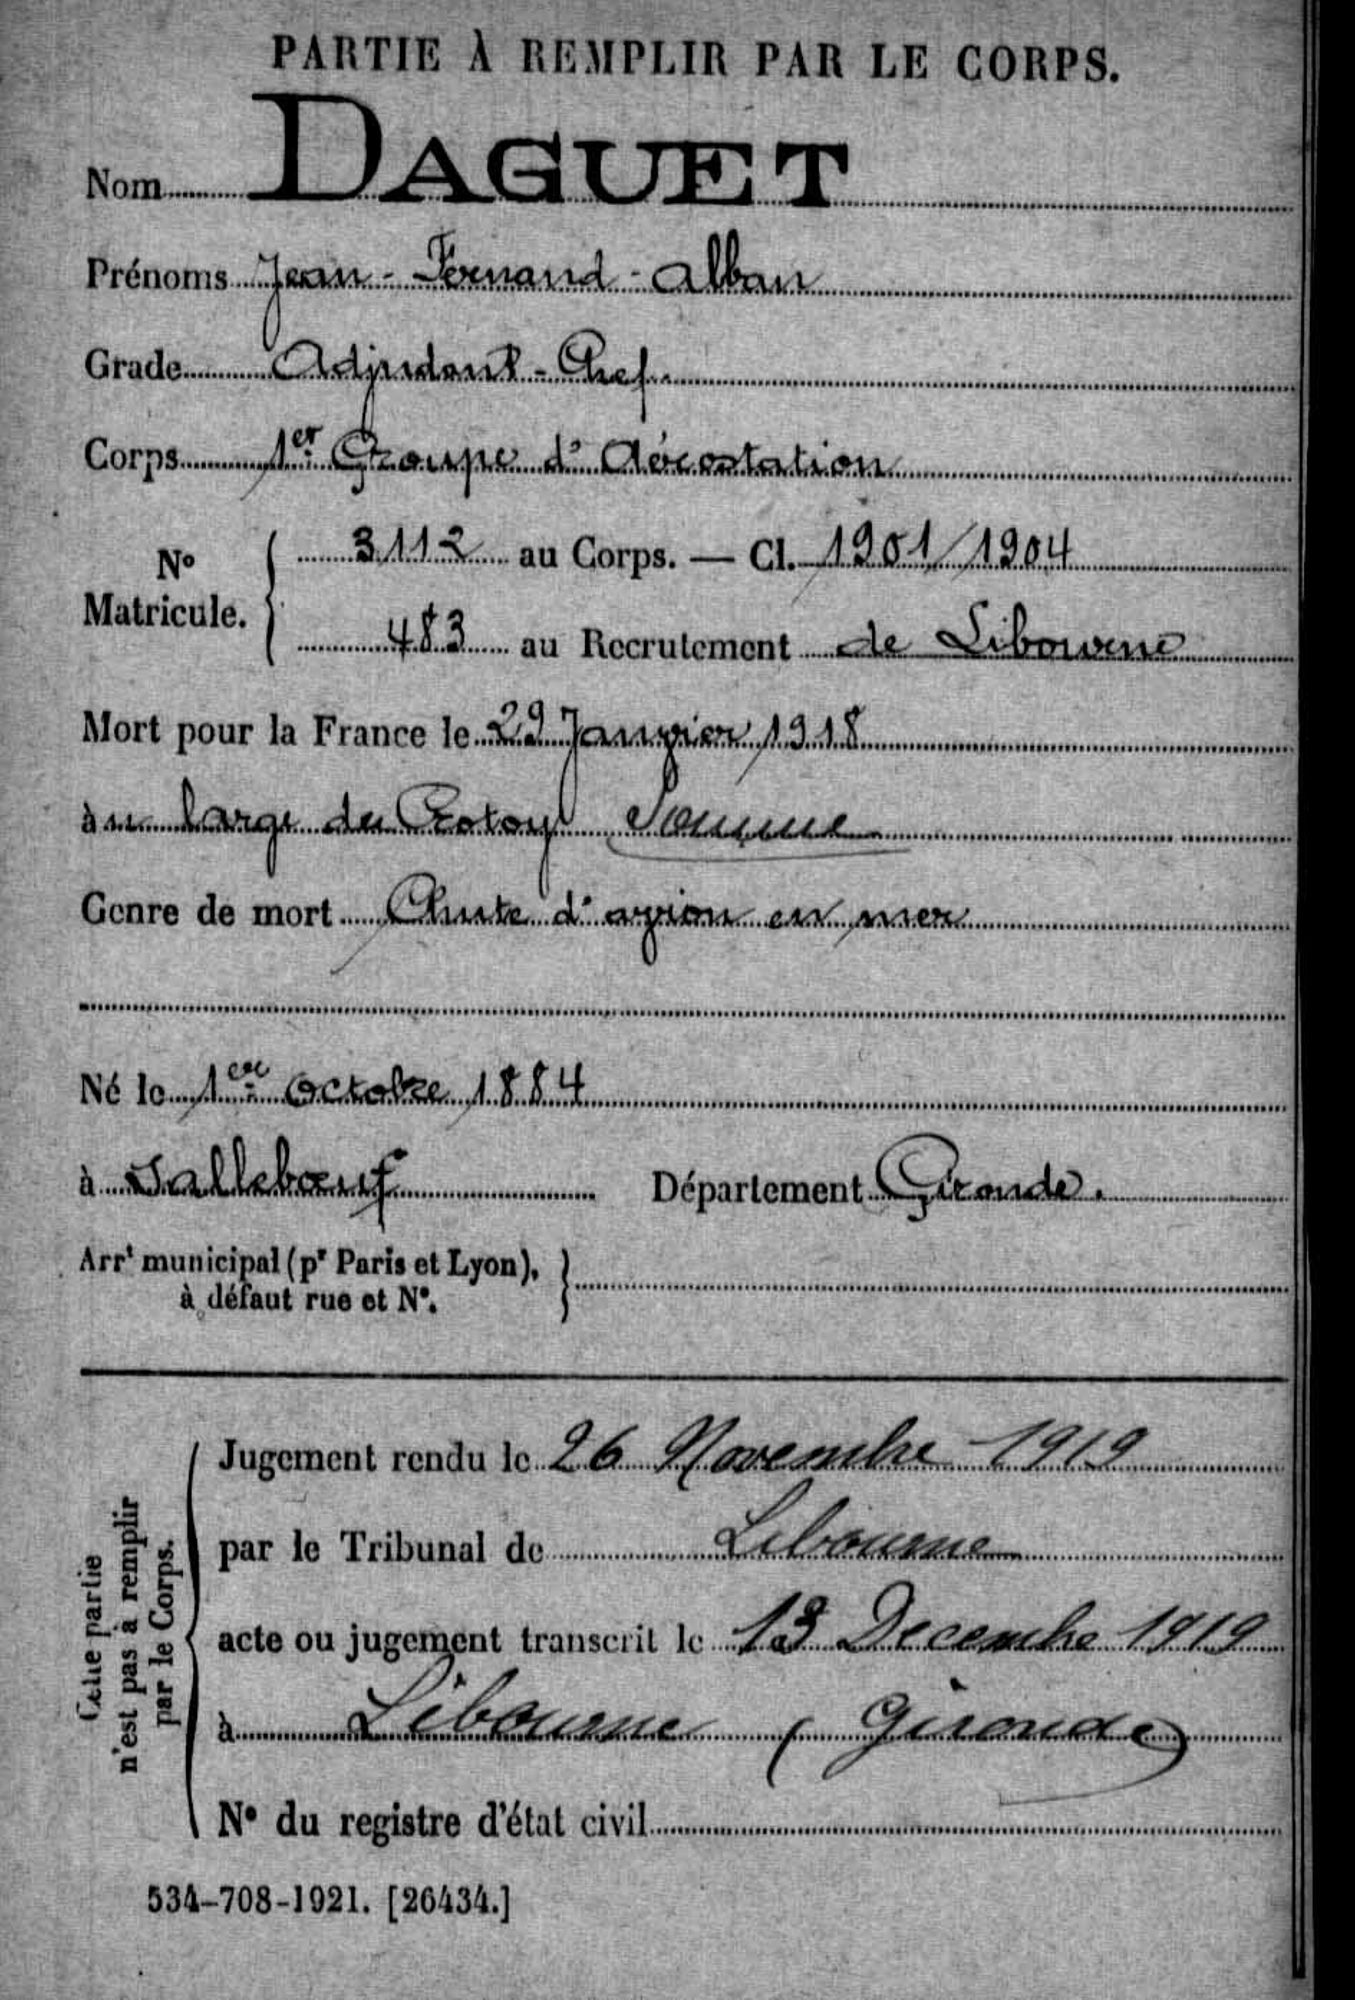 PARTIE À REMPLIR PAR LE CORPS.
Nom DAGUET
Prénoms Jean - Fernand - Alban
Grade Adjudant - Chef
Corps 1er Groupe d' Aérostation
No Matricule. 3112 au Corps. — Cl. 1901/1904
483 au Recrutement de Libourne
Mort pour la France le 29 Janvier 1918
au large du Crotoy Somme
Genre de mort Chute d'avion en mer
Né le 1er Octobre 1884
à Sallebœuf Département Gironde.
Arrt municipal (pr Paris et Lyon),
à défaut rue et N°.
Cette partie
n'est pas à remplir
par le Corps.
Jugement rendu le 26 Novembre 1919
par le Tribunal de Libourne
acte ou jugement transcrit le 13 Decembre 1919
à Libourne (Gironde)
N° du registre d'état civil
534-708-1921. [26434.]